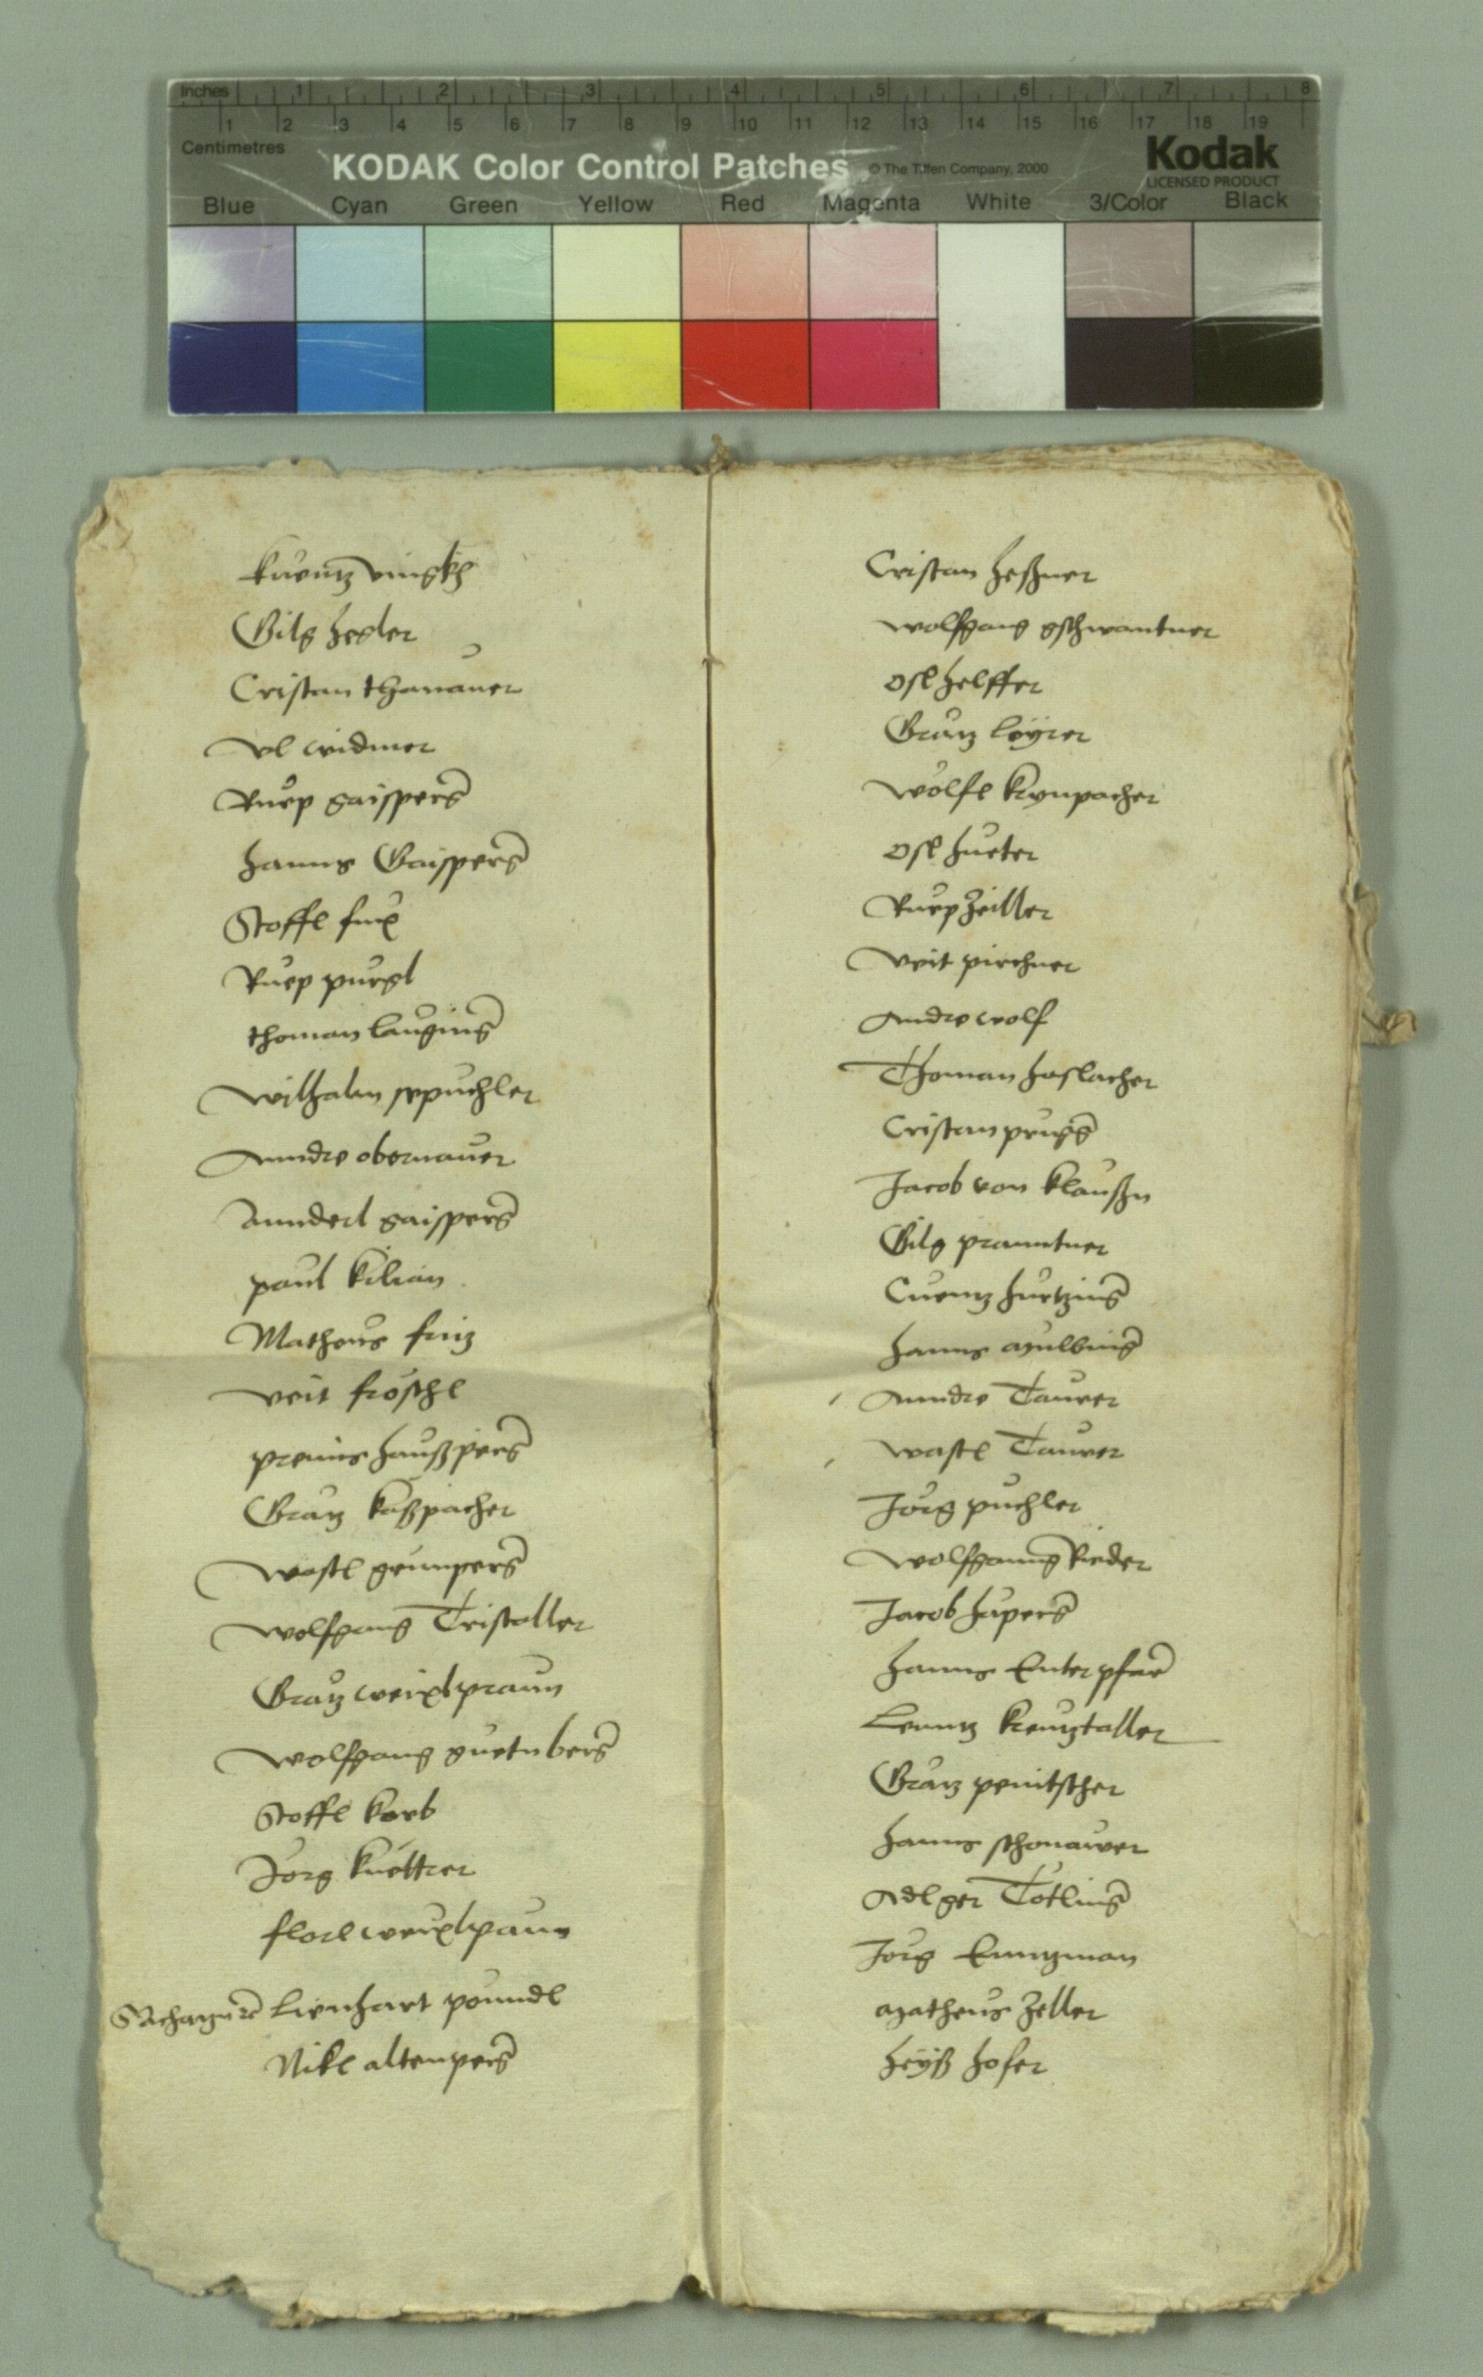 Inches 1 2 3 4 5 6 7 8
1 2 3 4 5 6 7 8 9 10 11 12 13 14 15 16 17 18 19
Centimetres
KODAK Color Control Patches © The Tiffen Company, 2000
Kodak
LICENSED PRODUCT
Blue Cyan Green Yellow Red Magenta White 3/Color Black
kuentz
Gilg hegler
Cristan thanauer
Vl widmer
Ruep gaisperg
hanns Gaisperg
Stoffl fux
Ruep purgl
thoman lauging
Wilhalm sepuchler
Anndre obernauer
Annderl gaisperg
paul kilian
Matheus fritz
Veit fröschl
premis haußperg
Gratz kaßpacher
Wastl grunperg
Wolfgang Tristaller
Gratz weixlpraun
Wolfgang guetnberg
Stoffl korb
Jorg kuettrer
florl weuxlpaum
Lienhart poundl
Nikl altenperg
Cristan heßner
Wolfgang gschwantner
Osl helffer
Gratz löyrer
Wölfl krynpacher
Osl hueter
Ruep Zeiller
Veit pirchner
Andre wolf
Thoman haslacher
Cristan prugg
Jacob von klaußn
Gilg pranntner
Cuentz hurtzing
hanns mulbing
Anndre Taurer
Wastl Taurer
Jörg puchler
Wolfganng Rieder
Jacob huperg
hanns Enterpfarr
Lenntz kreutztaller
Gratz penitscher
hanns schonawer
Adlger Totling
Jorg Enntzman
Matheus Zeller
heyß hofer